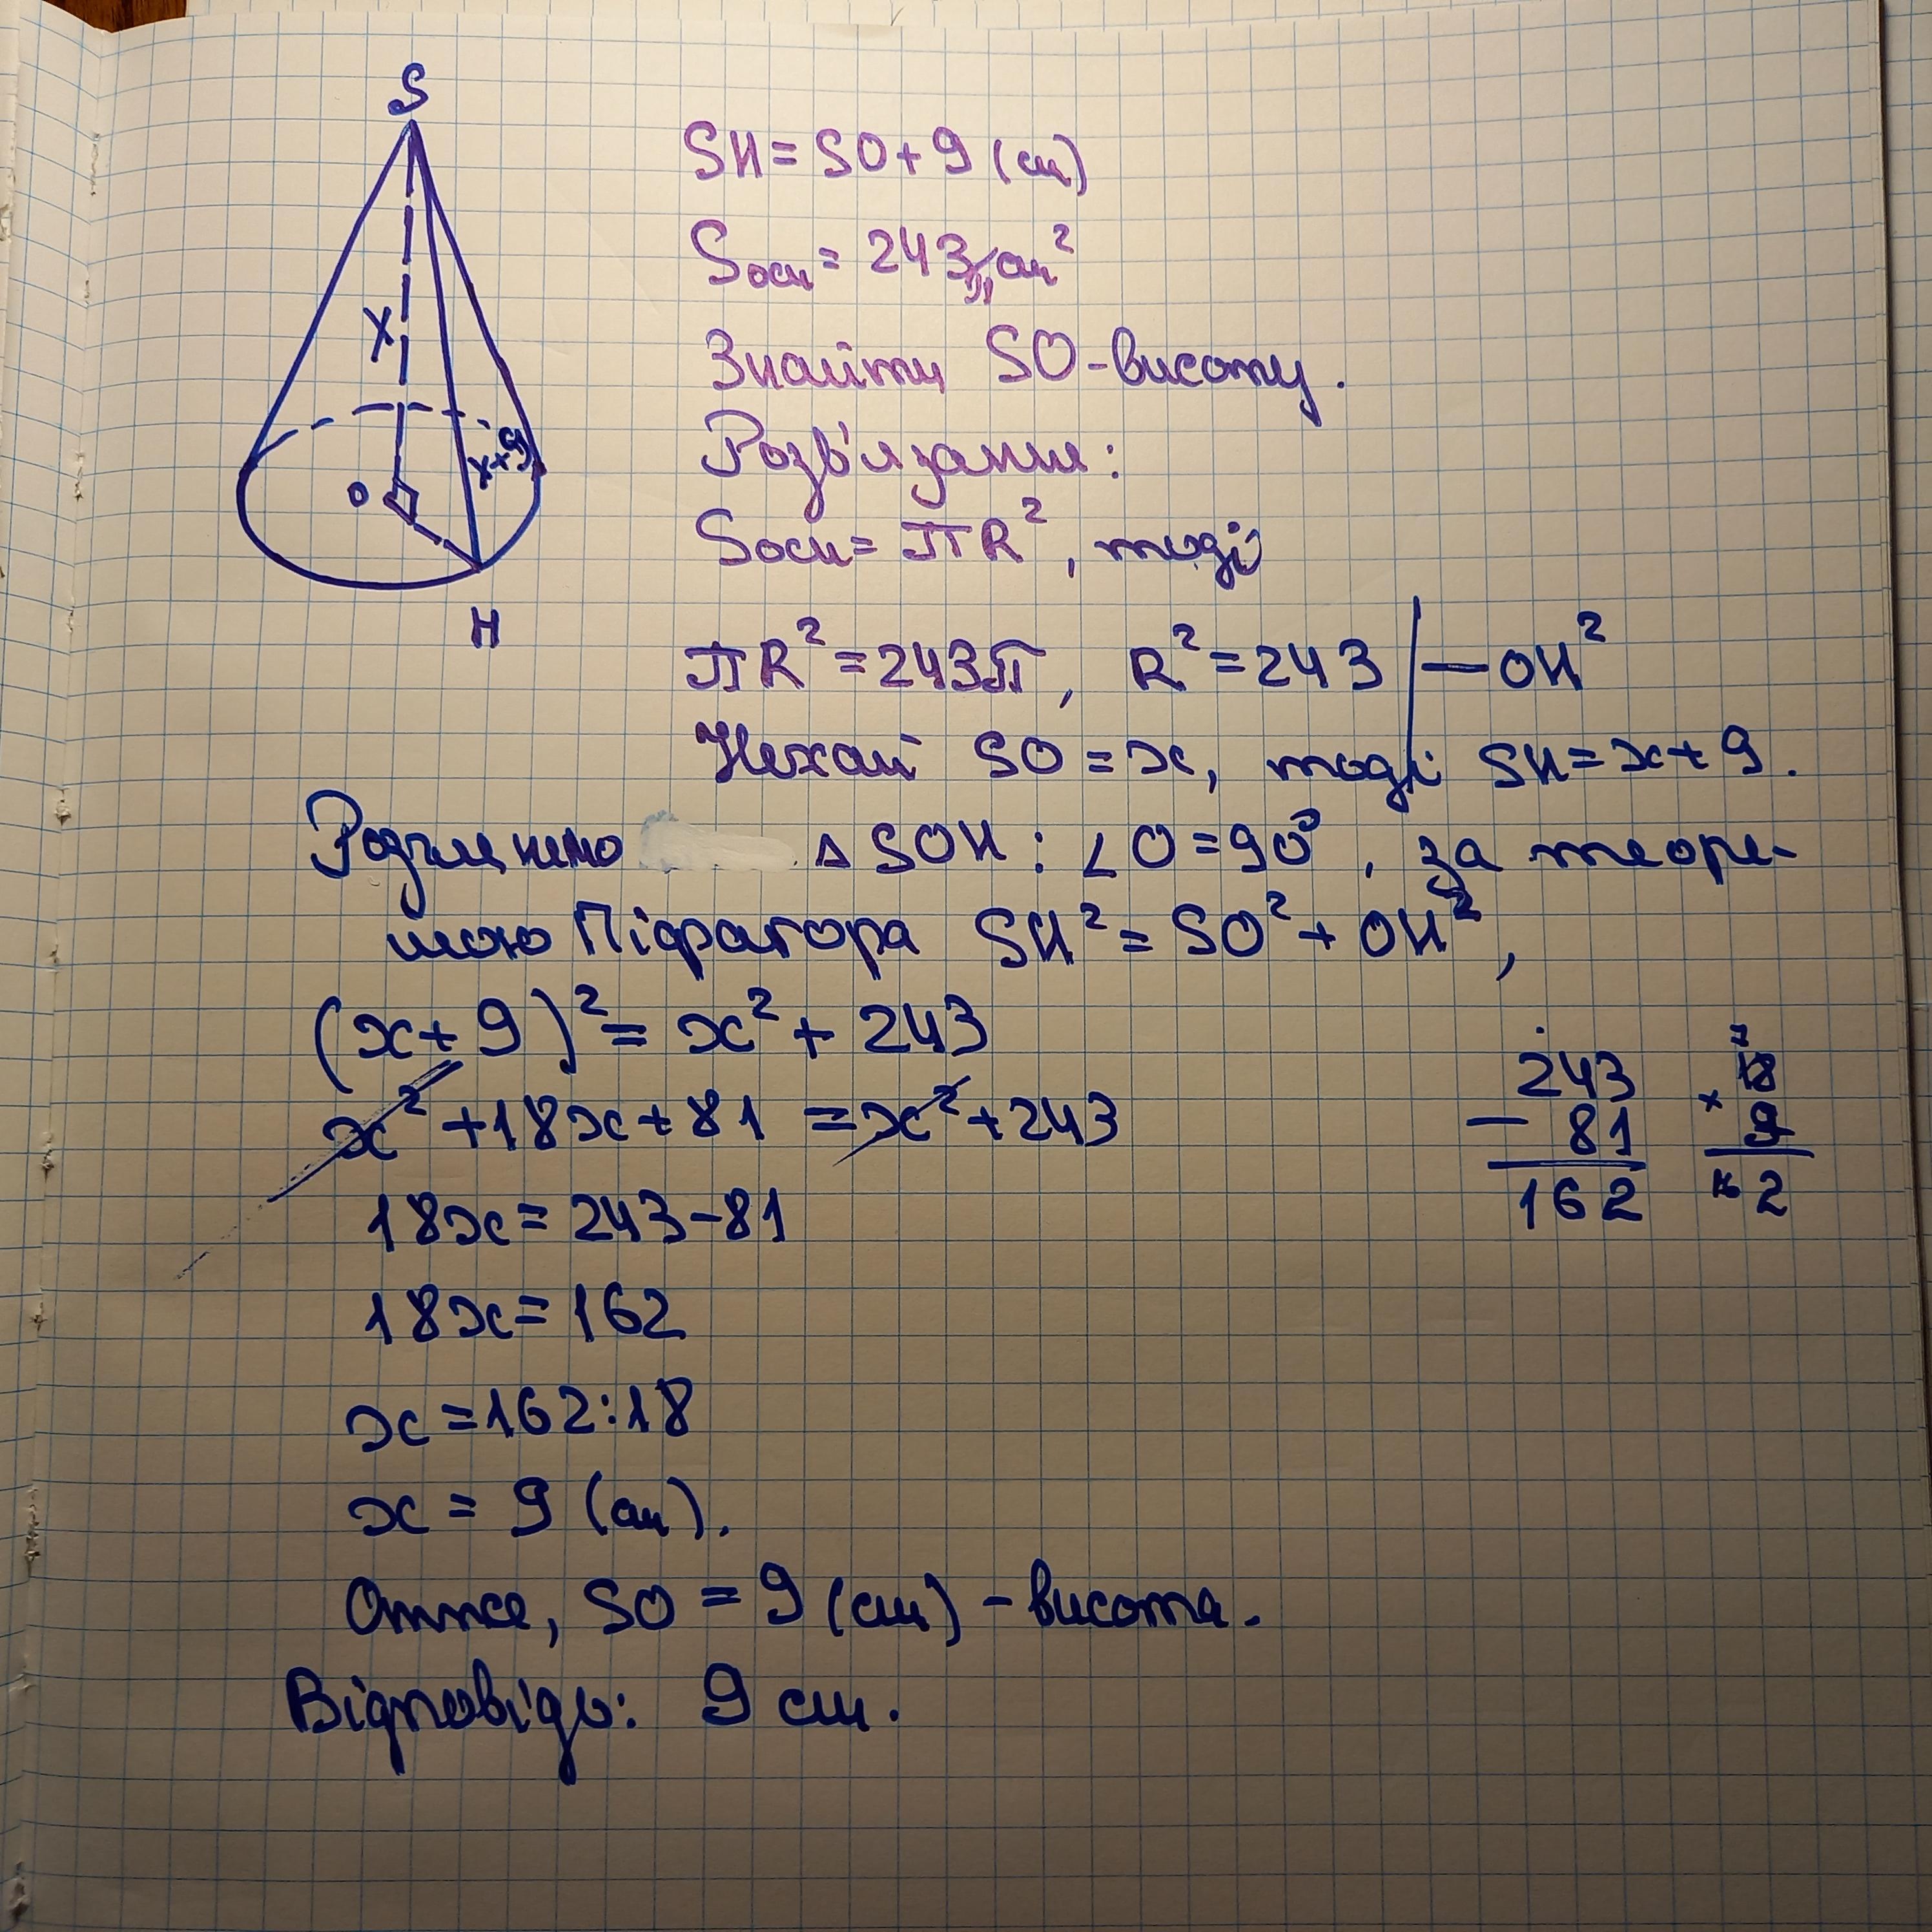 S
SH = SO + 9 (см)
Sосн = 243π см²
X
Знайти SO - висоту.
x+9
Розв'язання:
O
Sосн = πR², тоді
H
πR² = 243π, R² = 243 | — OH²
Нехай SO = x, тоді SH = x + 9.
Розглянемо △ SOH: ∠O = 90°, за теоре-
мою Піфагора SH² = SO² + OH²,
(x + 9)² = x² + 243
x² + 18x + 81 = x² + 243
18x = 243 - 81
18x = 162
x = 162 : 18
x = 9 (см).
Отже, SO = 9 (см) - висота.
Відповідь: 9 см.
243
- 81
162
7
18
× 9
162